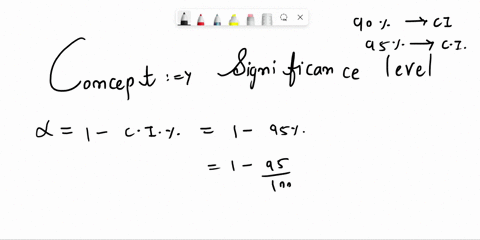 90% → CI
95% → C.I.
Concept :=> Significance level
α = 1 - C.I.% = 1 - 95%.
= 1 - 95/100